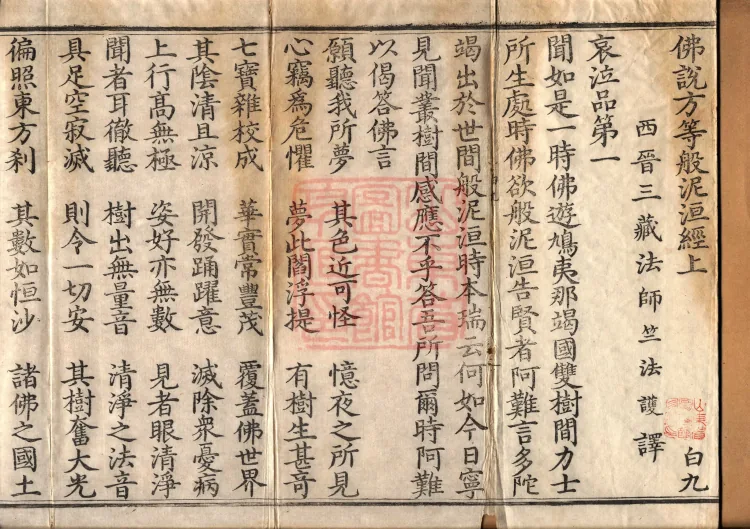 佛說方等般泥洹經上
西晉三藏法師竺法護譯
白九
哀泣品第一
聞如是一時佛遊鳩夷那竭國雙樹間力士
所生處時佛欲般泥洹告賢者阿難言多陀
竭出於世間般泥洹時本瑞云何如今日寧
見聞叢樹間感應不乎答吾所問爾時阿難
以偈答佛言
願聽我所夢 其色近可怪 憶夜之所見
心竊為危懼 夢此閻浮提 有樹生甚奇
七寶雜校成 華實常豐茂 覆蓋佛世界
其陰清且涼 開發踊躍意 滅除衆憂病
上行高無極 姿好亦無數 見者眼清淨
聞者耳徹聽 樹出無量音 清淨之法音
具足空寂滅 則令一切安 其樹奮大光
徧照東方剎 其數如恒沙 諸佛之國土